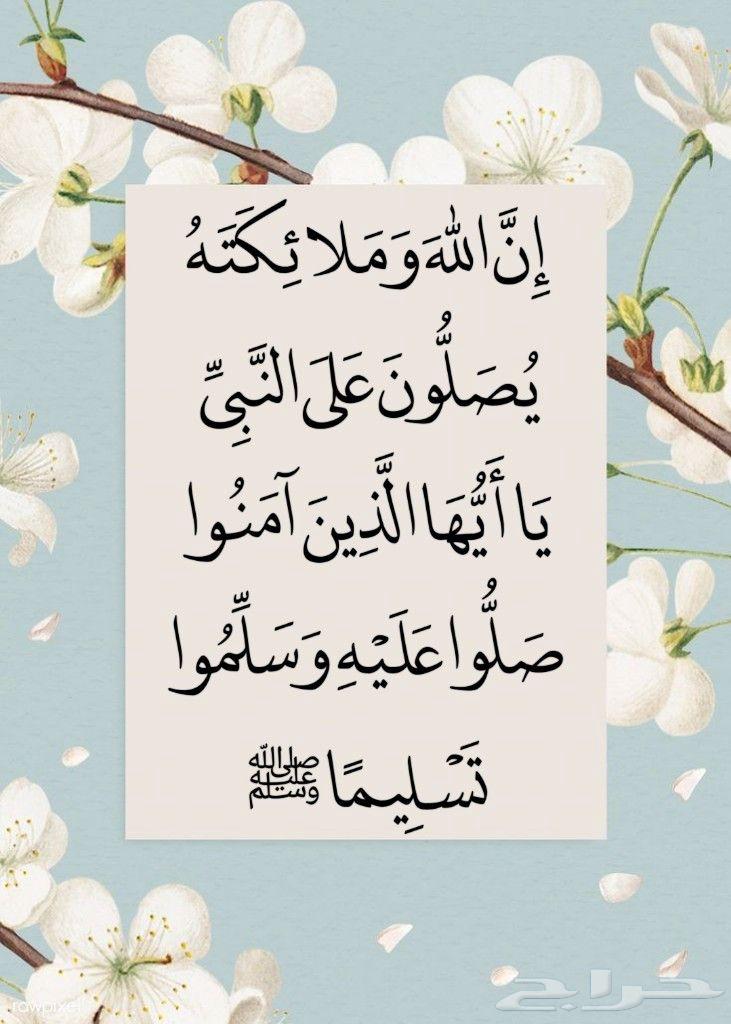 إِنَّ اللهَ وَمَلائِكَتَهُ
يُصَلُّونَ عَلَى النَّبِيِّ
يَا أَيُّهَا الَّذِينَ آمَنُوا
صَلُّوا عَلَيْهِ وَسَلِّمُوا
تَسْلِيمًا ﷺ
حراج
rawpixel